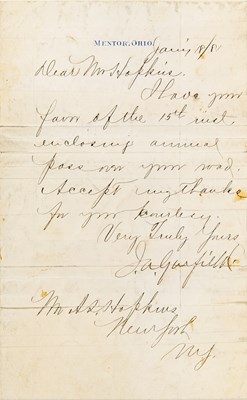 MENTOR, OHIO.
Dear Mr Hopkins.
I have your
favor of the 15th inst.
enclosing annual
pass over your road.
Accept my thanks
for your courtesy.
Very Truly Yours
J. A. Garfield
Mr A. S. Hopkins
New York
N.Y.